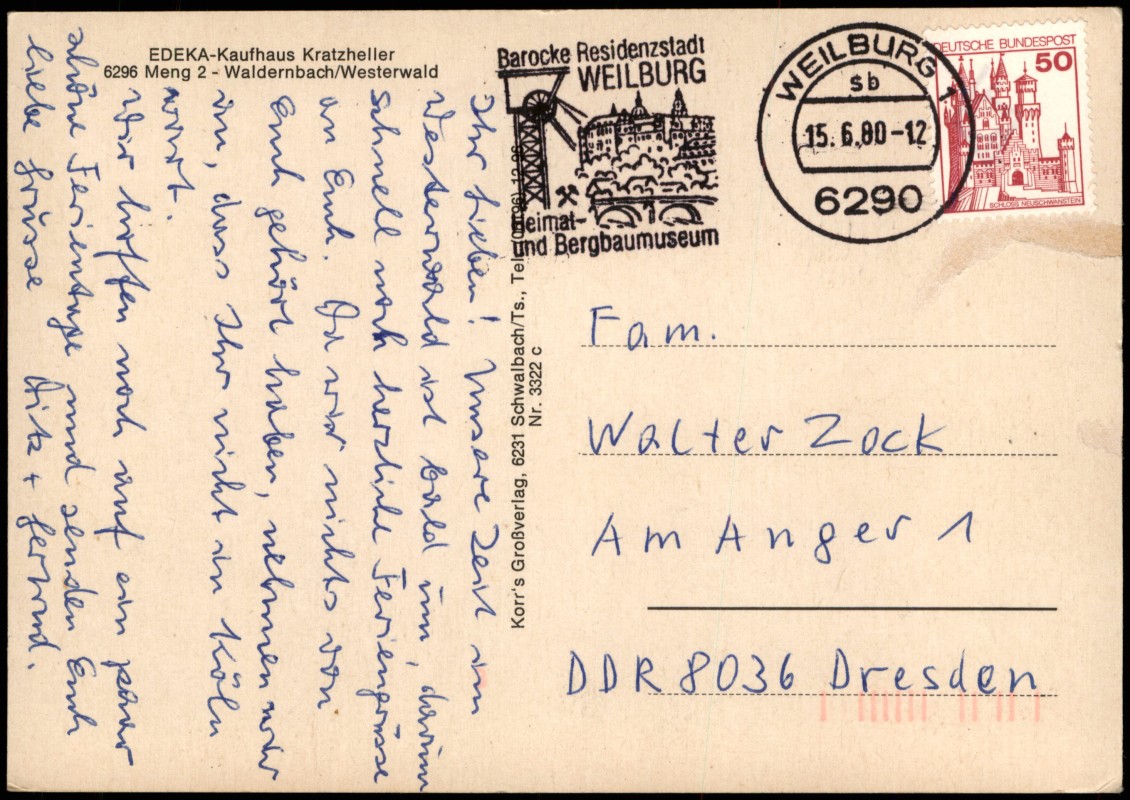 EDEKA-Kaufhaus Kratzheller
6296 Meng 2 - Waldernbach/Westerwald
Ihr Lieben! Unsere Zeit im
Westerwald ist bald um, darum
schnell noch herzliche Feriengrüsse
an Euch. Da wir nichts von
Euch gehört haben, nehmen wir
an, dass Ihr nicht in Köln
wart.
Wir hoffen noch auf ein paar
schöne Ferientage und senden Euch
liebe Grüsse
Korr's Großverlag, 6231 Schwalbach/Ts., Tel. (06196) 12 86
Nr. 3322 c
Barocke Residenzstadt
WEILBURG
Heimat-
und Bergbaumuseum
WEILBURG 1
sb
15.6.80-12
6290
DEUTSCHE BUNDESPOST
50
SCHLOSS NEUSCHWANSTEIN
Fam.
Walter Zock
Am Anger 1
DDR 8036 Dresden